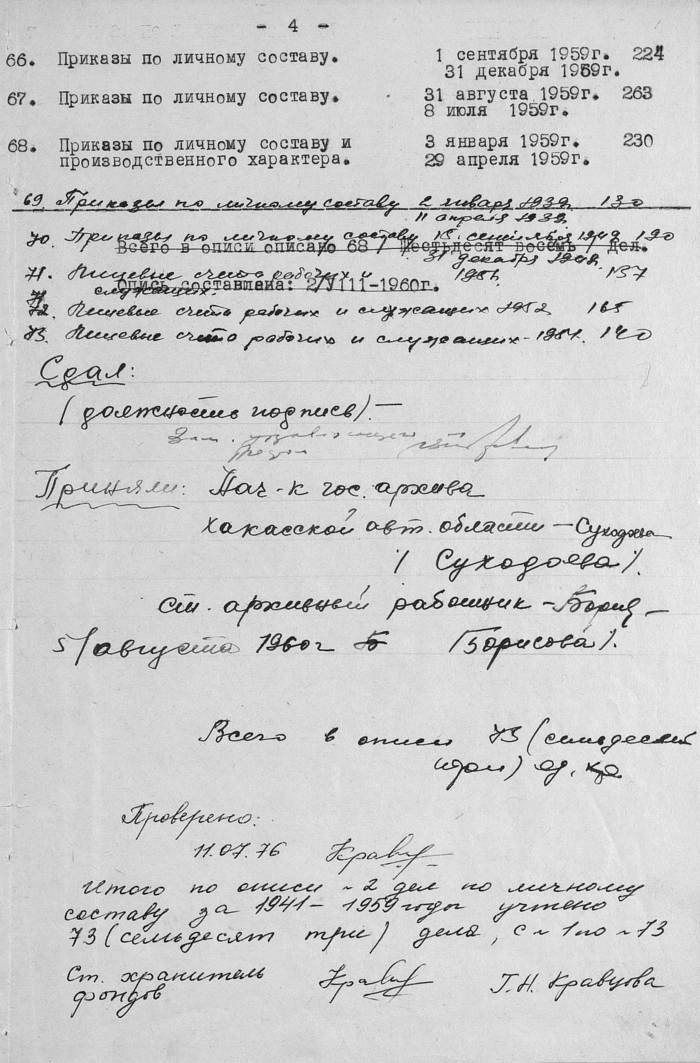 - 4 -
66. Приказы по личному составу. 1 сентября 1959г. 224
31 декабря 1959г.
67. Приказы по личному составу. 31 августа 1959г. 263
8 июля 1959г.
68. Приказы по личному составу и 3 января 1959г. 230
производственного характера. 29 апреля 1959г.
69. Приказы по личному составу 2 января 1939г. 130
11 апреля 1939.
70. Приказы по личному составу 15 сентября 1948 190
Всего в описи описано 68 / Шестьдесят восемь / дел.
31 декабря 1948.
71. Лицевые счета рабочих и 1951. 137
Опись составлена: 2/VIII-1960г.
служащих.
72. Лицевые счета рабочих и служащих 1952 165
73. Лицевые счета рабочих и служащих - 1954. 140
Сдал:
(должность подпись).-
Зам.
Приняли: Нач-к гос. архива
Хакасской авт. области - Суходоева
/ Суходоева /.
ст. архивный работник -
5/августа 1960г /Борисова/.
Всего в описи 73 (семьдесят
три) ед. хр.
Проверено:
11.07.76 Кравц
Итого по описи №2 дел по личному
составу за 1941-1959 годы учтено
73 (семьдесят три) дела, с №1 по №73
Ст. хранитель Кравц Г.Н. Кравцова
фондов